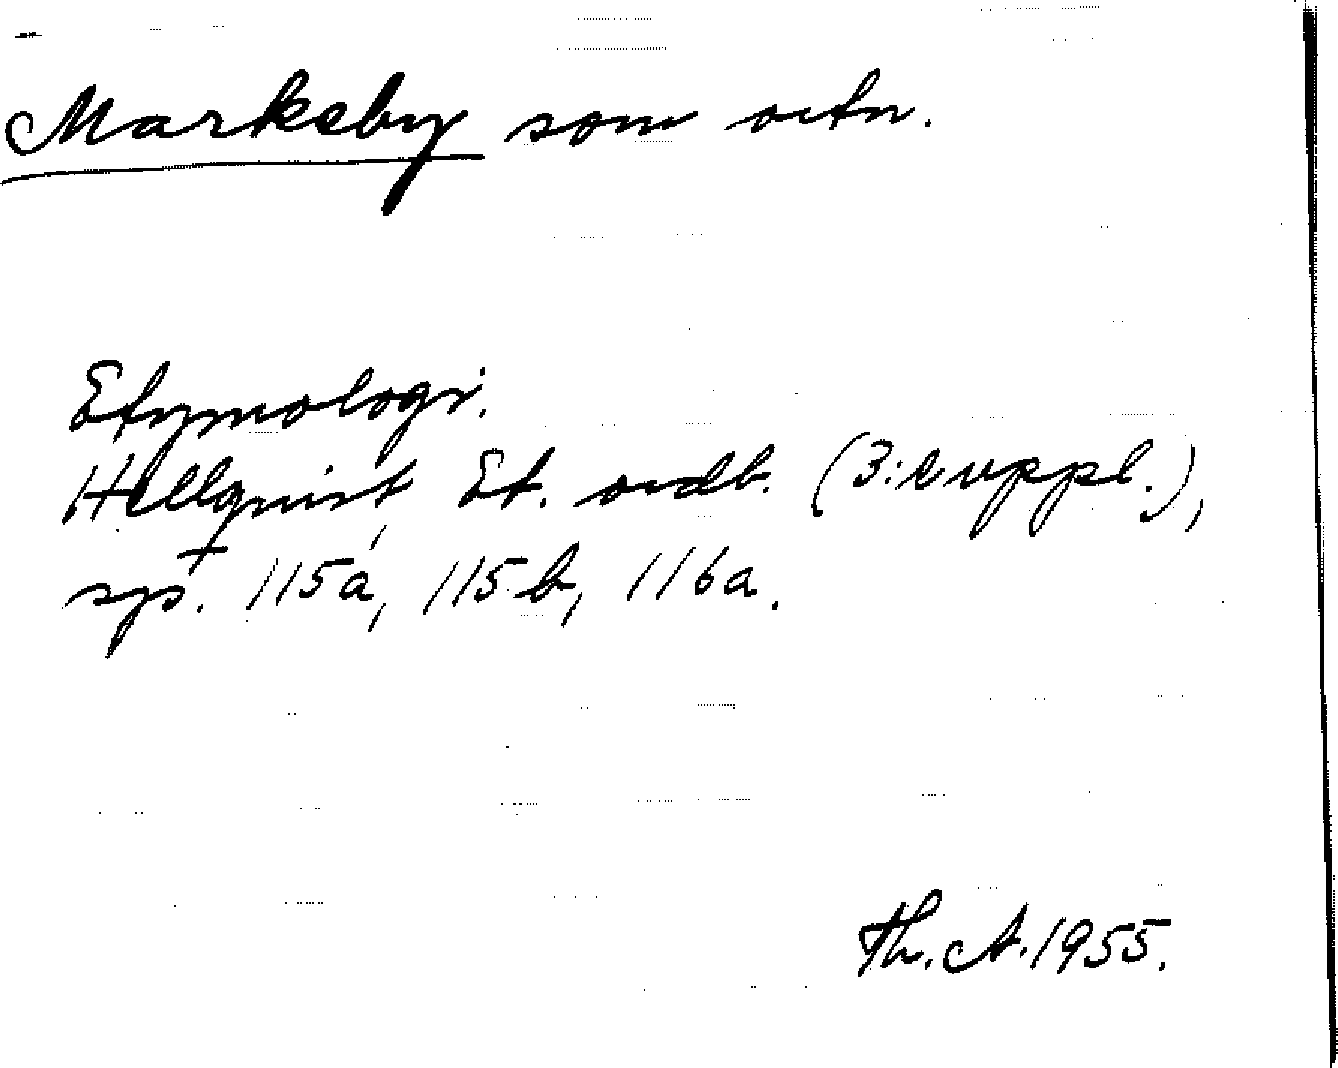 Markeby som ortn.
Etymologi.
Hellquist, Et. ordb. (3:e uppl.),
sp. 115a, 115b, 116a.
Th. A. 1955.